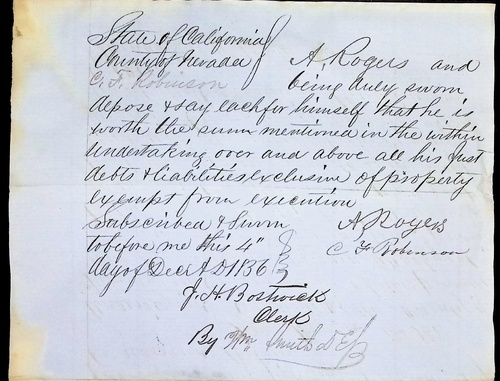 State of California
County of Nevada } A. Rogers and
C. F. Robinson being duly sworn
depose & say each for himself that he is
worth the sum mentioned in the within
undertaking over and above all his just
debts & liabilities exclusive of property
exempt from execution
Subscribed & Sworn A Rogers
to before me this 4" C F Robinson
day of Dec A D 1863
J. H. Bostwick
Clerk
By Wm Smith D C